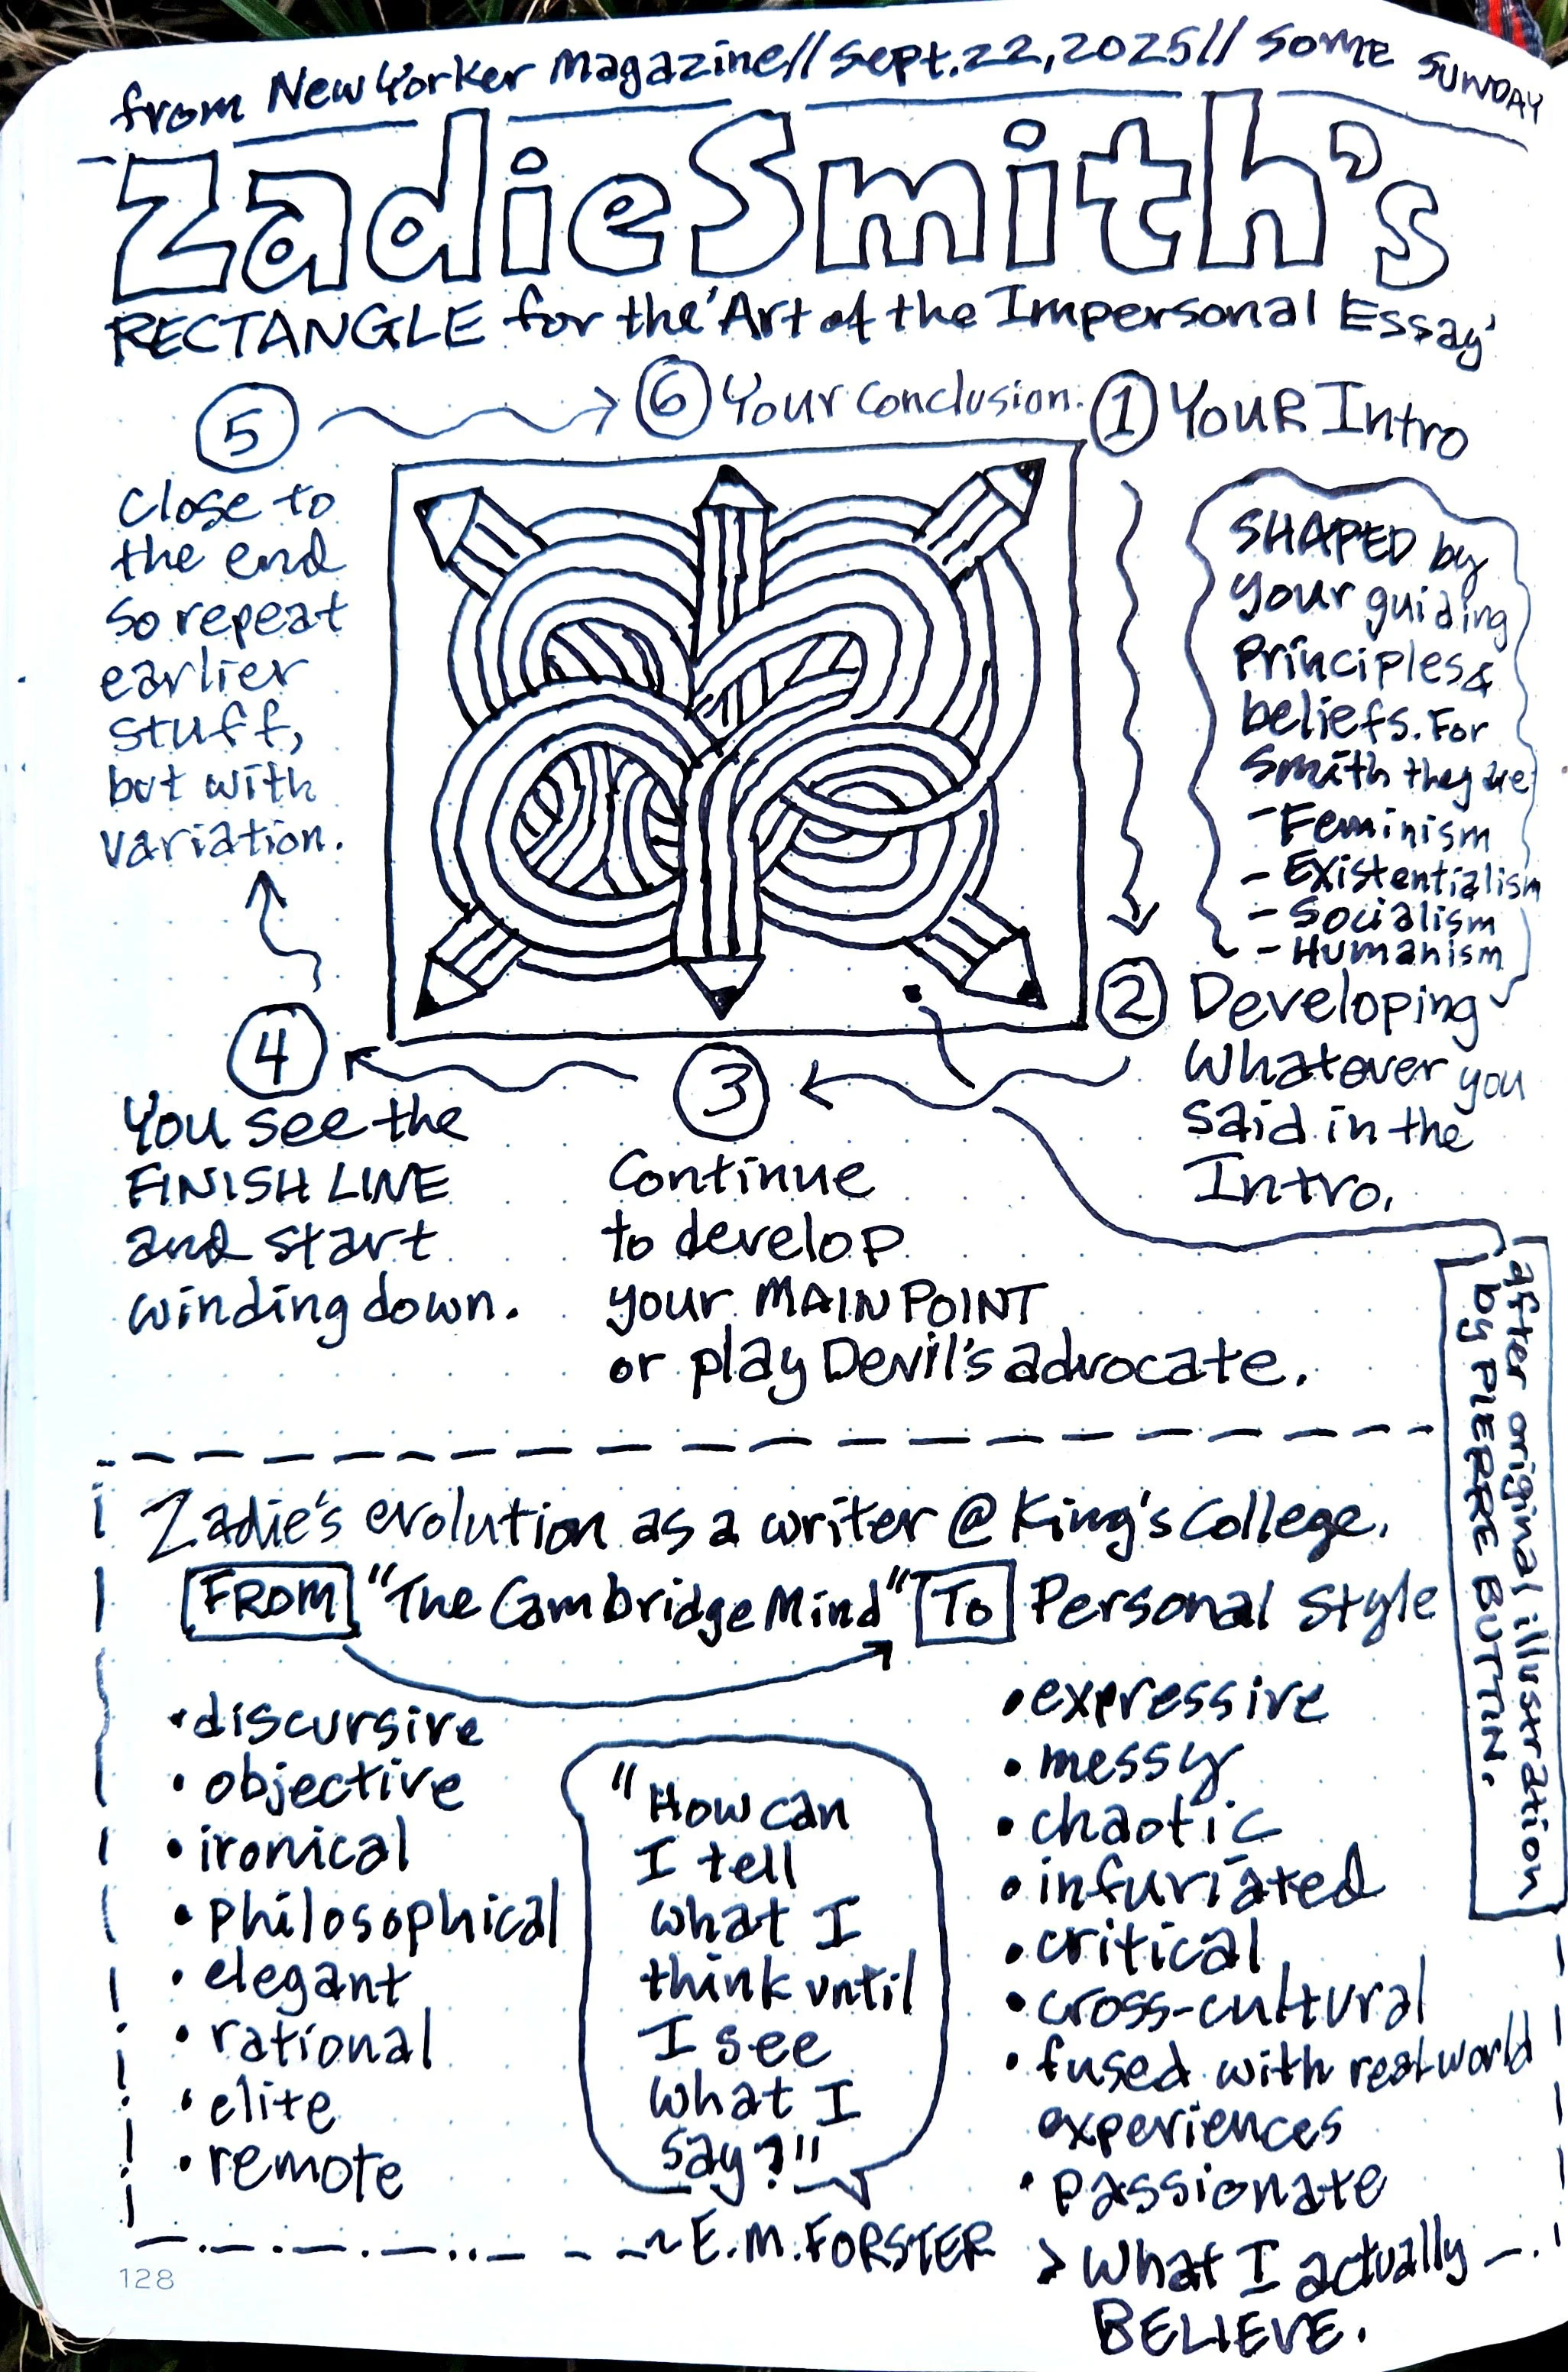 from New Yorker Magazine// Sept. 22, 2025// SOME SUNDAY
Zadie Smith's
RECTANGLE for the 'Art of the Impersonal Essay'
① YOUR Intro
SHAPED by
your guiding
Principles &
beliefs. For
Smith they are
- Feminism
- Existentialism
- Socialism
- Humanism
② Developing
Whatever you
said in the
Intro.
③
Continue
to develop
your MAIN POINT
or play Devil's advocate.
④
You see the
FINISH LINE
and start
winding down.
⑤
Close to
the end
so repeat
earlier
stuff,
but with
variation.
⑥ Your Conclusion.
after original illustration
by PIERRE BUTTIN.
Zadie's evolution as a writer @ King's College.
FROM "The Cambridge Mind" To Personal Style
• discursive
• objective
• ironical
• Philosophical
• elegant
• rational
• elite
• remote
"How can
I tell
what I
think until
I see
what I
say?"
~ E.M. FORSTER
• expressive
• messy
• chaotic
• infuriated
• critical
• cross-cultural
• fused with real world
experiences
• passionate
> What I actually
BELIEVE.
128